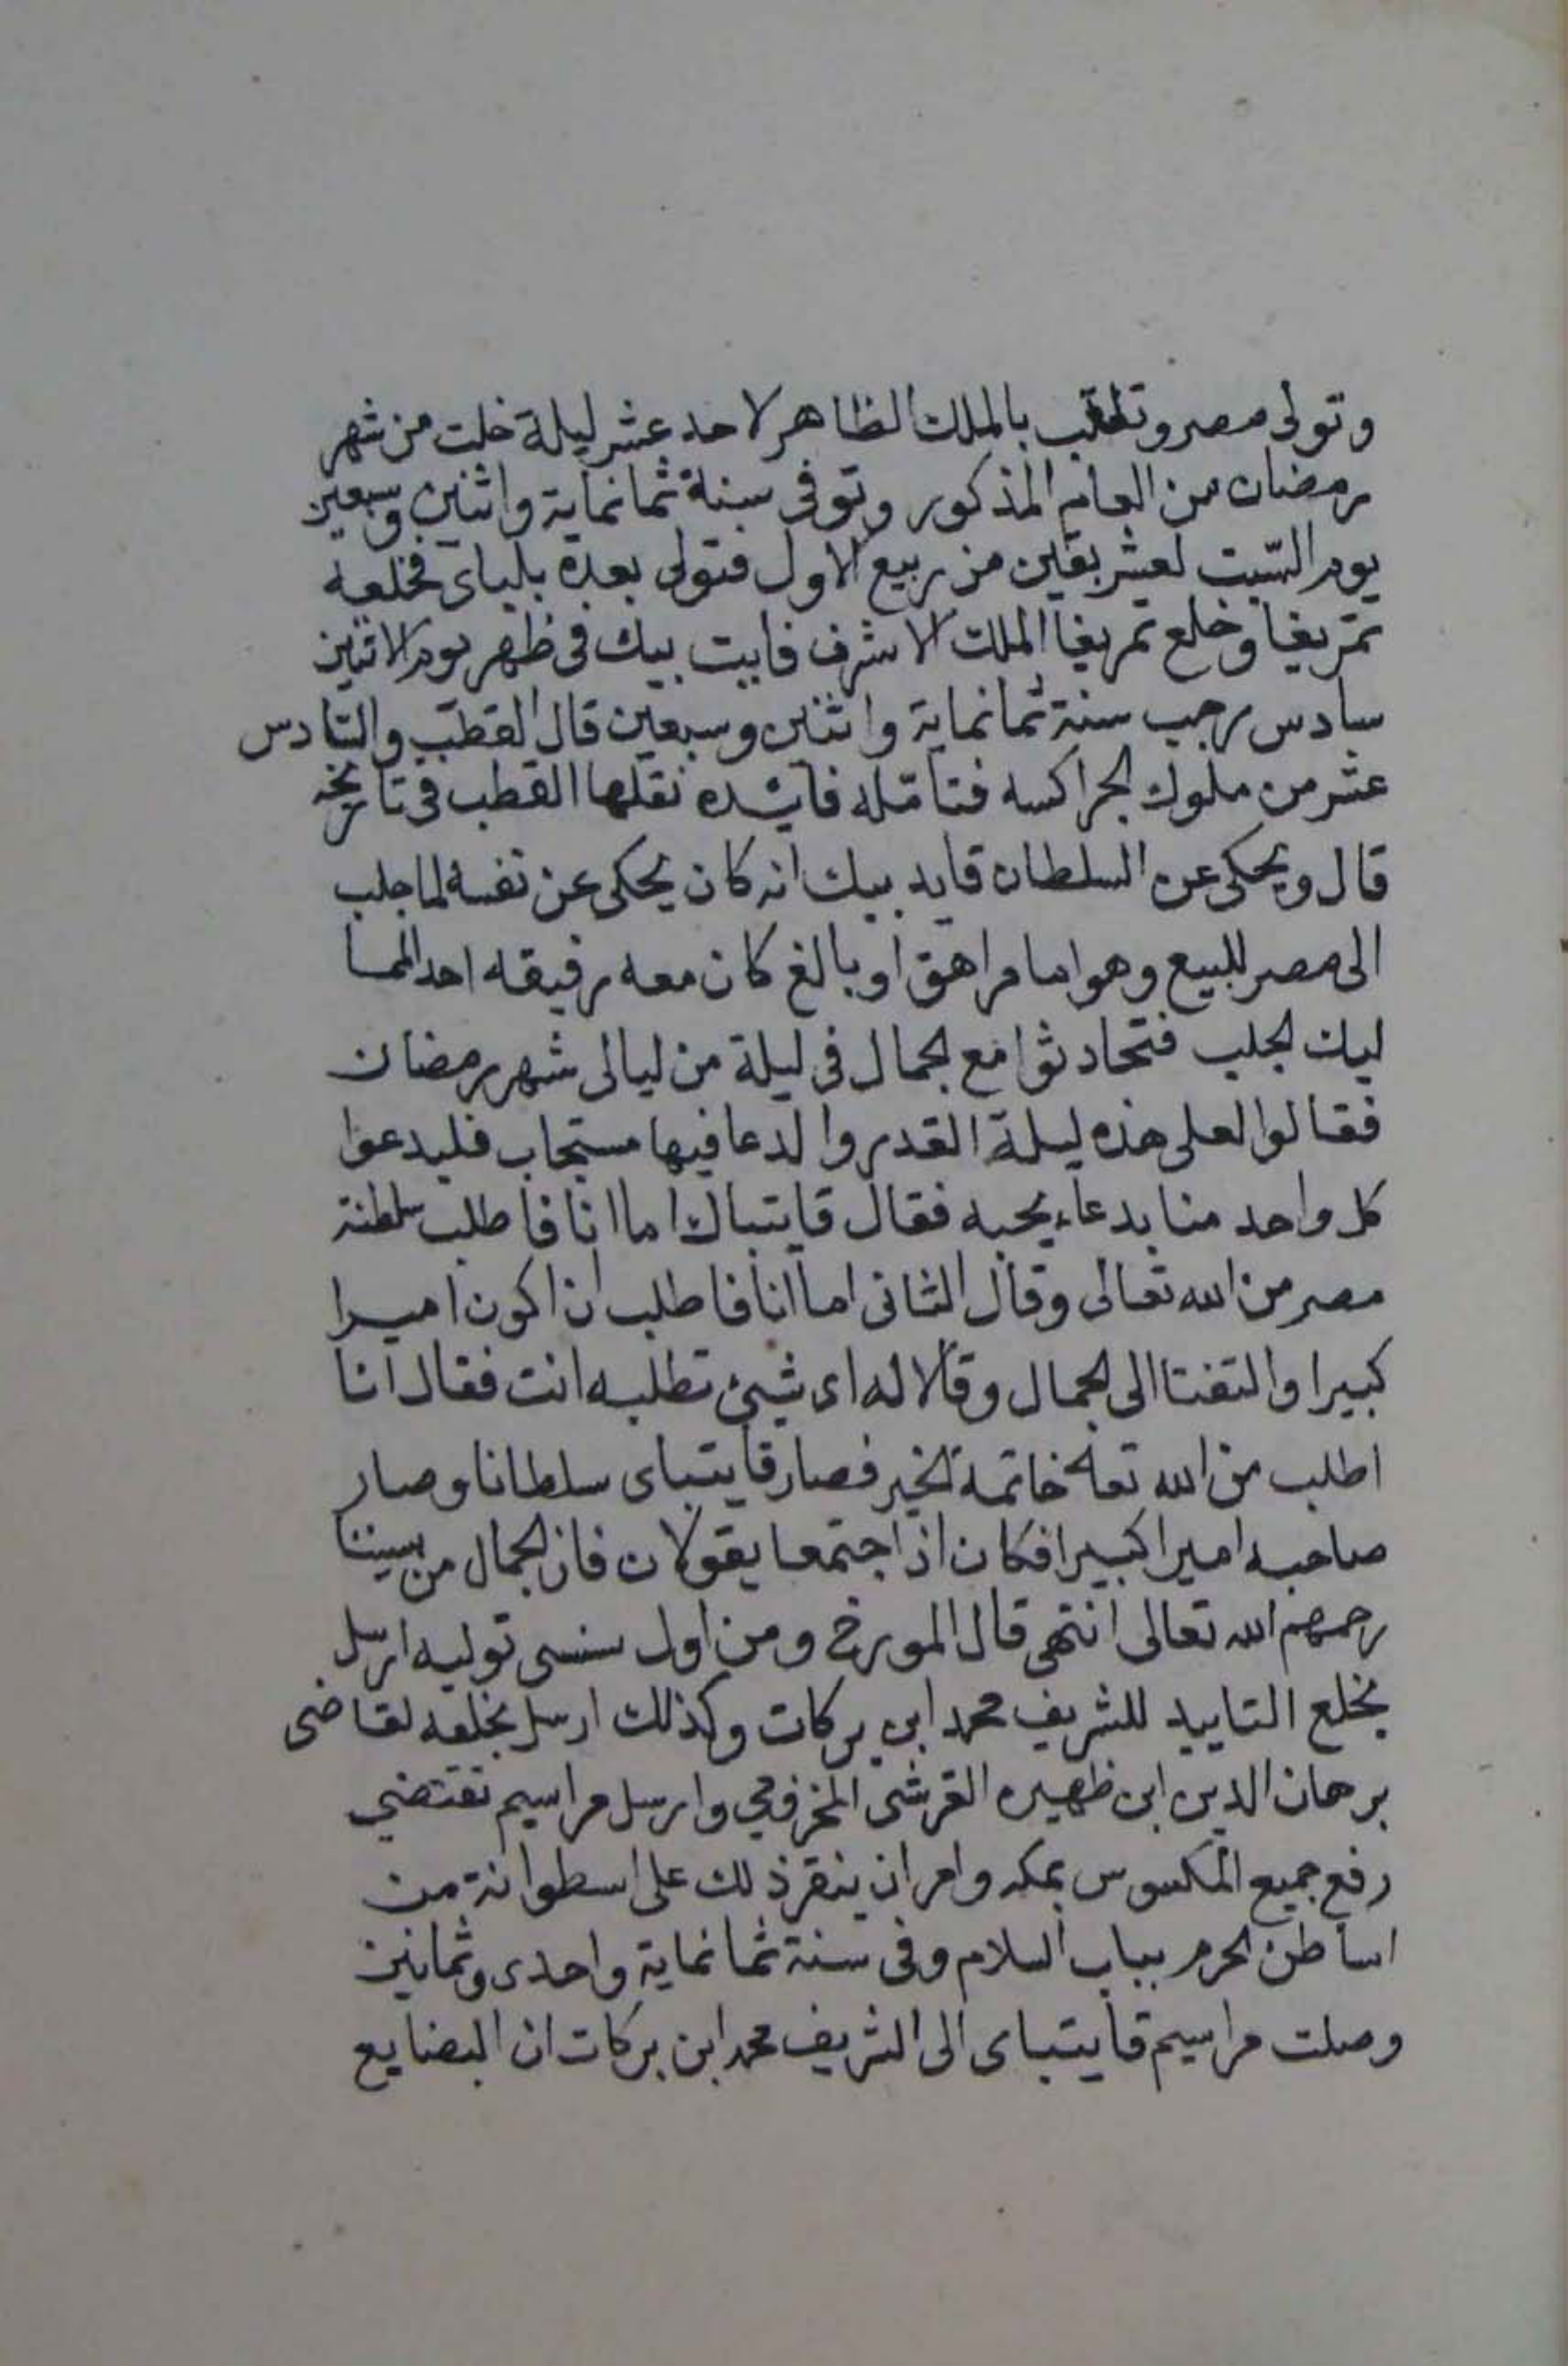 وتولى مصر وتلقب بالملك الظاهر لاحد عشر ليلة خلت من شهر
رمضان من العام المذكور وتوفى سنة ثمانماية واثنين وسبعين
يوم السّبت لعشر بقين من ربيع الاول فتولى بعده بلباى فخلعه
تمربغا وخلع تمربغا الملك الاشرف قايت بيك فى ظهر يوم الاثنين
سادس رجب سنة ثمانماية واثنين وسبعين قال القطب والسادس
عشر من ملوك الجراكسه فتامّله فايده نقلها القطب فى تاريخه
قال ويحكى عن السلطان قايد بيك انه كان يحكى عن نفسه لما جلب
الى مصر للبيع وهو اما مراهق او بالغ كان معه رفيقه احد المما
ليك الجلب فتحادثوا مع الجمال فى ليلة من ليالى شهر رمضان
فقالوا لعلى هذه ليلة القدر والدعا فيها مستجاب فليدعوا
كل واحد منا بدعاء يحبه فقال قايتباك اما انا فاطلب سلطنة
مصر من الله تعالى وقال الثانى اما انا فاطلب ان اكون اميرا
كبيرا والتفتا الى الجمال وقالا له اى شيئ تطلبه انت فقال انا
اطلب من الله تعالى خاتمة الخير فصار قايتباى سلطانا وصار
صاحبه اميرا كبيرا فكان اذا اجتمعا يقولان فاز الجمال من بيننا
رحمهم الله تعالى انتهى قال المورخ ومن اول سنسى توليه ارسل
بخلع التاييد للشريف محمد ابن بركات وكذلك ارسل بخلعه لقاضى
برهان الدين ابن ظهيره القرشى المخزومي وارسل مراسيم تقتضي
رفع جميع المكسوس بمكه وامر ان ينقر ذلك على اسطوانة من
اساطن الحرم بباب السلام وفى سنة ثمانماية واحدى وثمانين
وصلت مراسيم قايتباى الى الشريف محمد ابن بركات ان البضايع